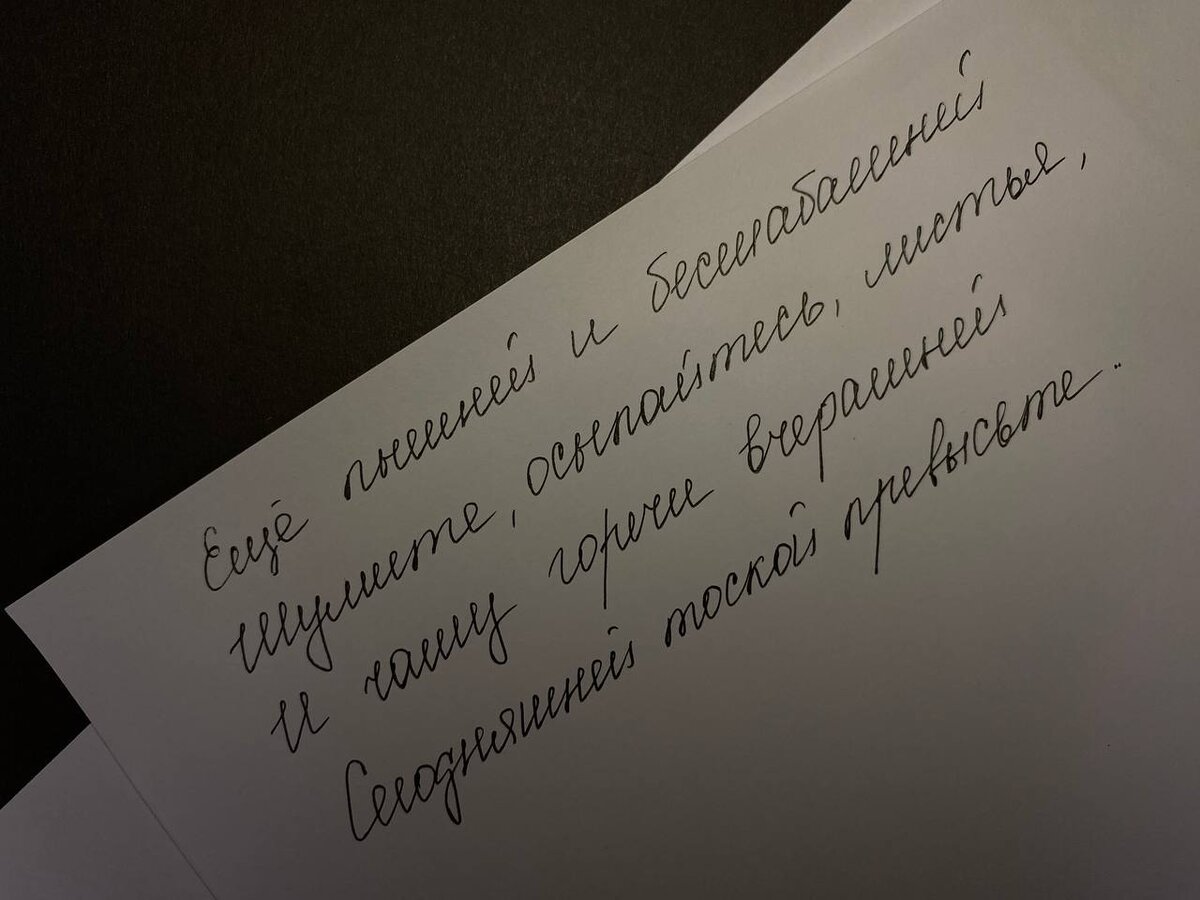 Ещё пышней и бесшабашней
Шумите, осыпайтесь, листья,
И чашу горечи вчерашней
Сегодняшней тоской превысьте..